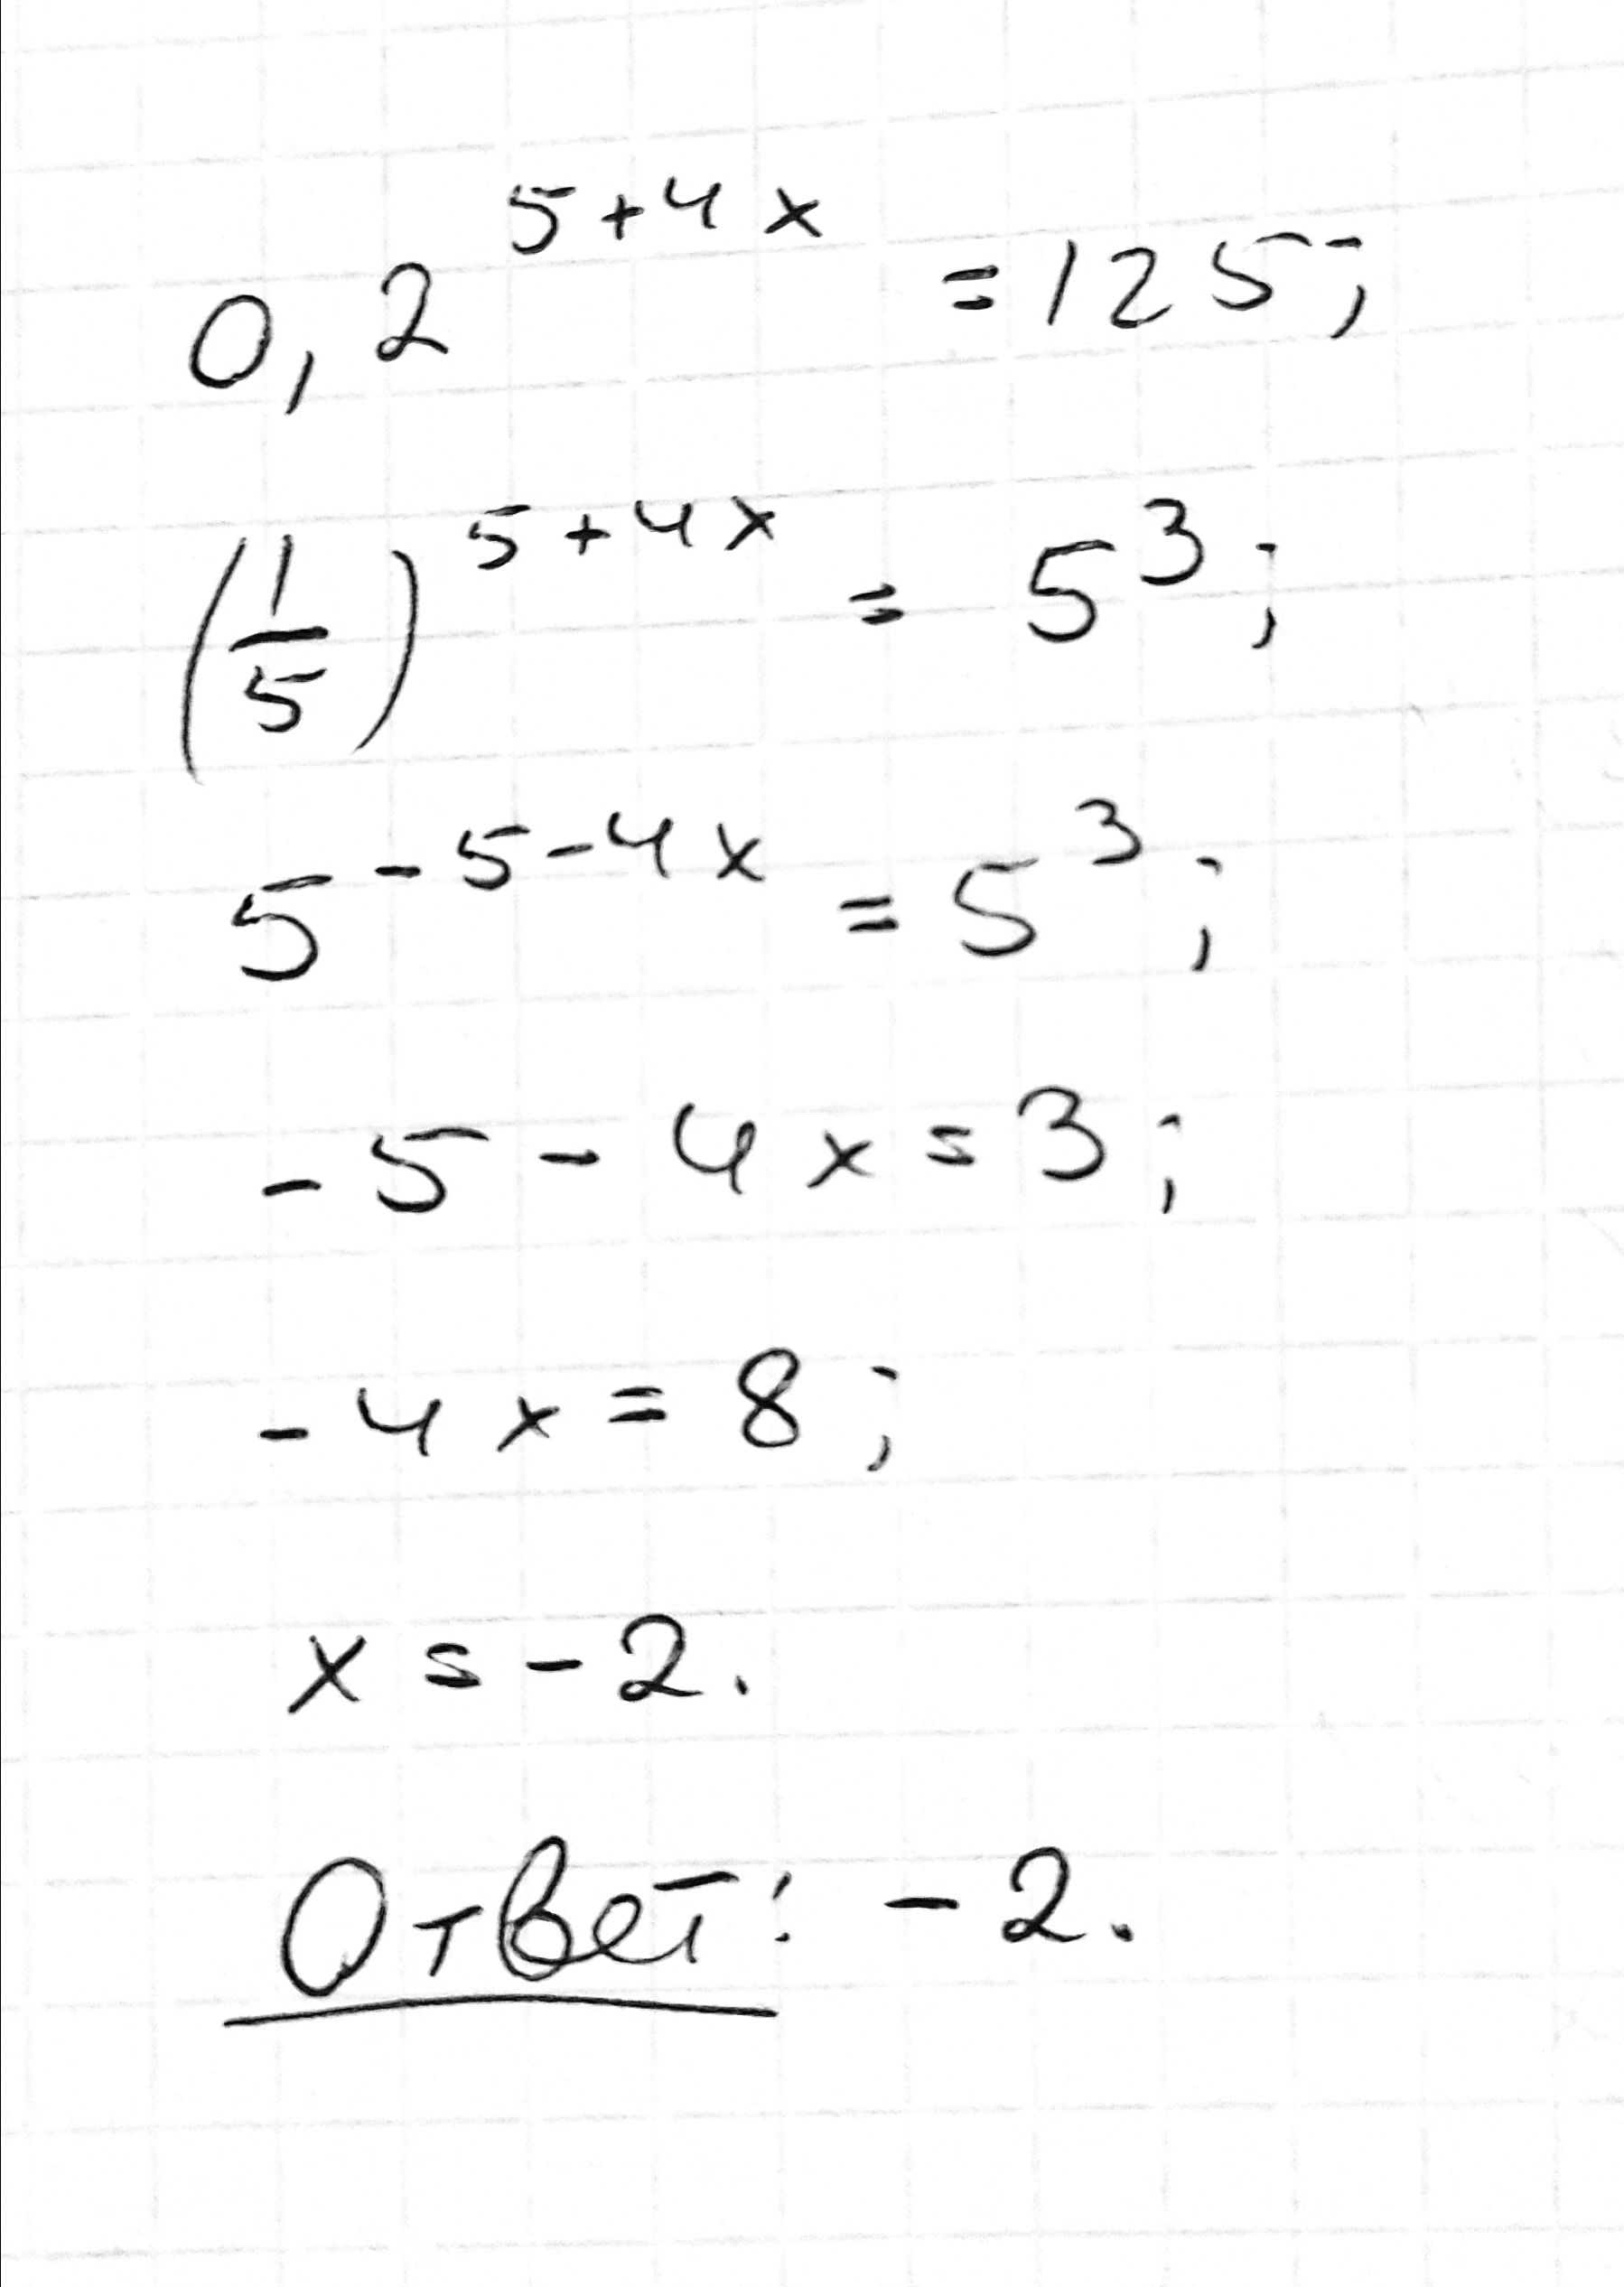 0,2^{5+4x} = 125;
(1/5)^{5+4x} = 5^3;
5^{-5-4x} = 5^3;
-5-4x=3;
-4x=8;
x=-2.
Ответ: -2.